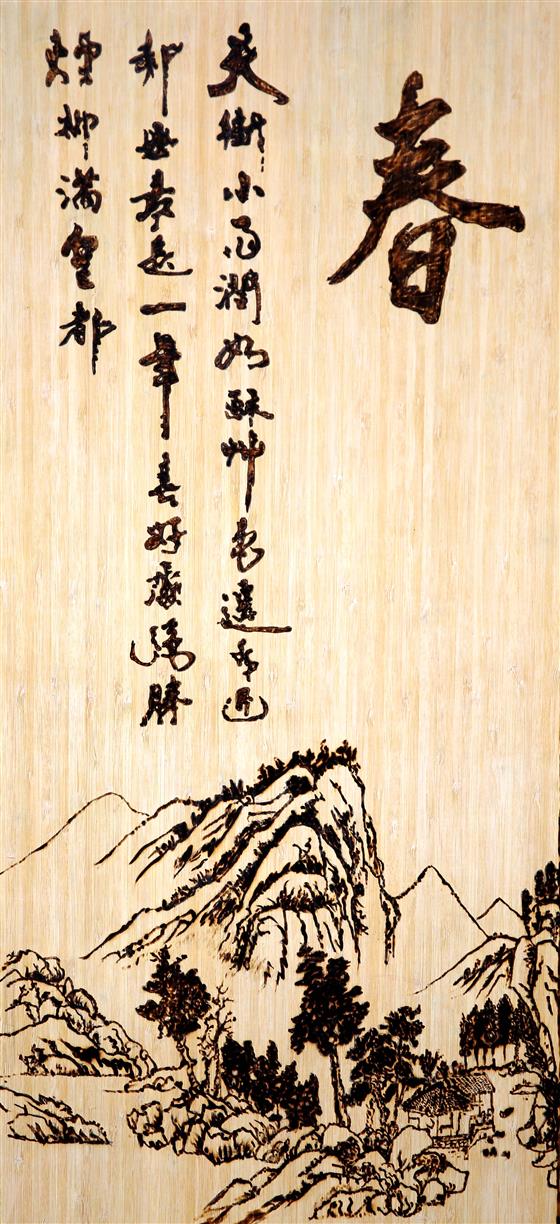 春
天街小雨潤如酥草色遥看近
却無最是一年春好處絕勝
煙柳滿皇都